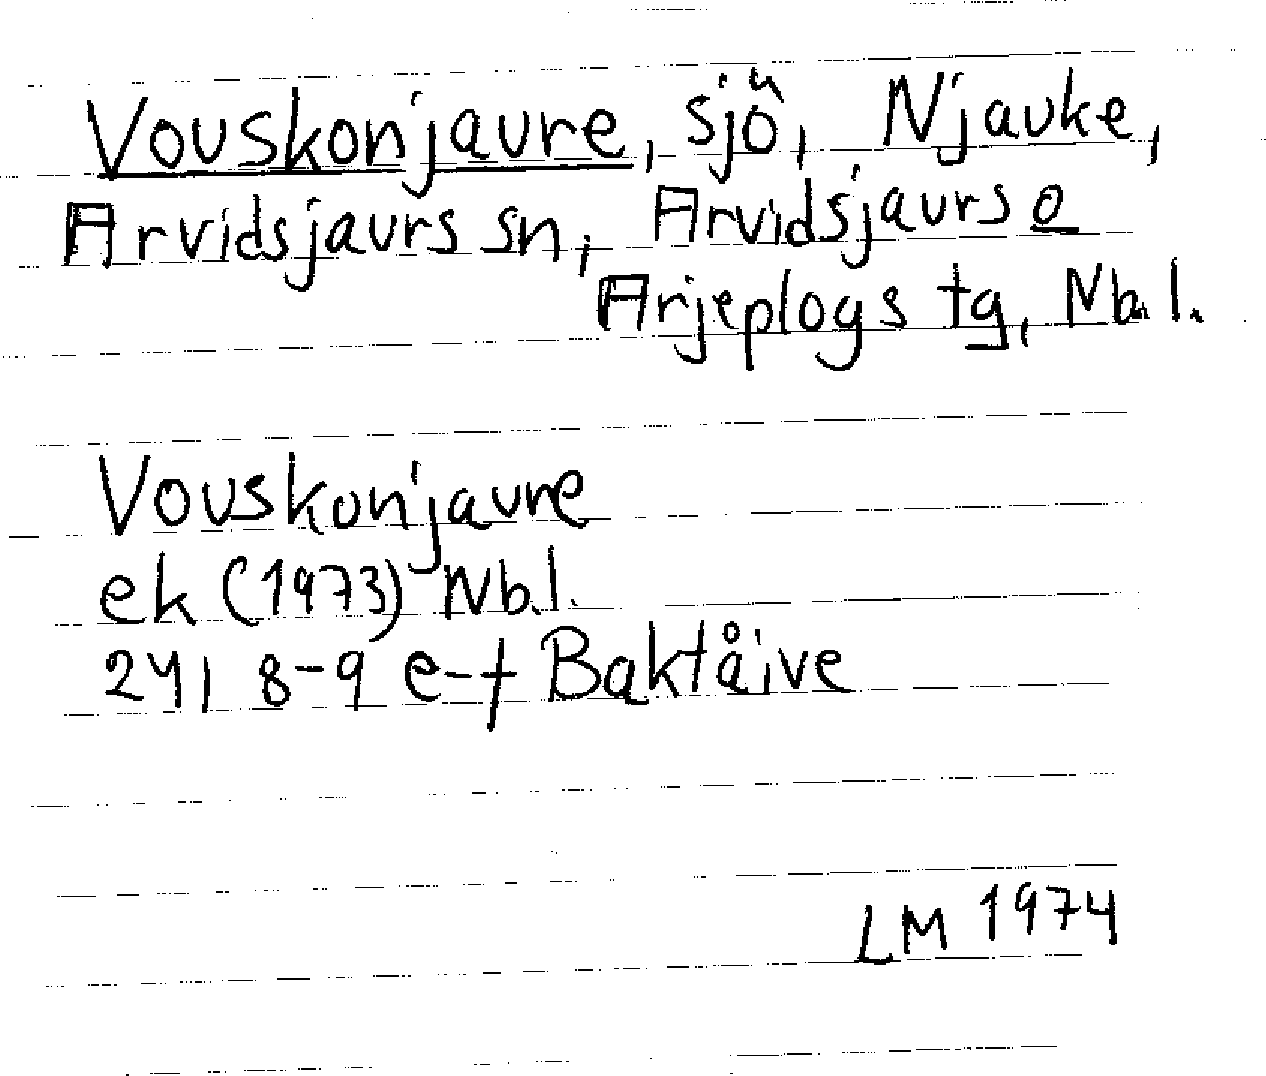 Vouskonjaure, sjö, Njauke,
Arvidsjaurs sn, Arvidsjaurs o
Arjeplogs tg, Nb. l.
Vouskonjaure
ek (1973) Nb.l.
24I 8-9 e-f Baktåive
LM 1974